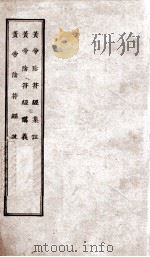 黃帝陰符經集註
黃帝陰符經講義
黃帝陰符經疏